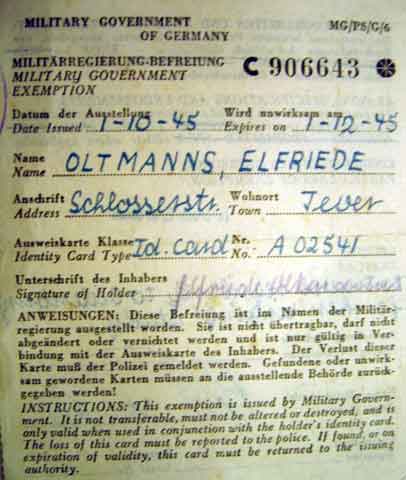 MILITARY GOVERNMENT
OF GERMANY
MG/PS/G/6
MILITÄRREGIERUNG-BEFREIUNG
MILITARY GOVERNMENT
EXEMPTION
C 906643
Datum der Ausstellung
Date Issued 1-10-45
Wird unwirksam am
Expires on 1-12-45
Name
Name OLTMANNS, ELFRIEDE
Anschrift
Address Schlosserstr.
Wohnort
Town Jever
Ausweiskarte Klasse
Identity Card Type Id. Card
Nr.
No. A 02541
Unterschrift des Inhabers
Signature of Holder
ANWEISUNGEN: Diese Befreiung ist im Namen der Militär-
regierung ausgestellt worden. Sie ist nicht übertragbar, darf nicht
abgeändert oder vernichtet werden und ist nur gültig in Ver-
bindung mit der Ausweiskarte des Inhabers. Der Verlust dieser
Karte muß der Polizei gemeldet werden. Gefundene oder unwirk-
sam gewordene Karten müssen an die ausstellende Behörde zurück-
gegeben werden!
INSTRUCTIONS: This exemption is issued by Military Govern-
ment. It is not transferable, must not be altered or destroyed, and is
only valid when used in conjunction with the holder's identity card.
The loss of this card must be reported to the police. If found, or on
expiration of validity, this card must be returned to the issuing
authority.